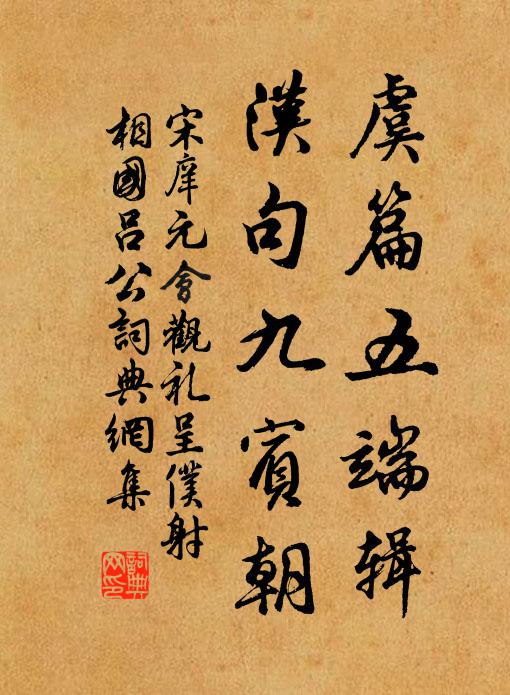 虞篇五端辑
漢句九賓朝
宋庠元會觀礼呈僕射
相國呂公詞典網集
詞典
网印